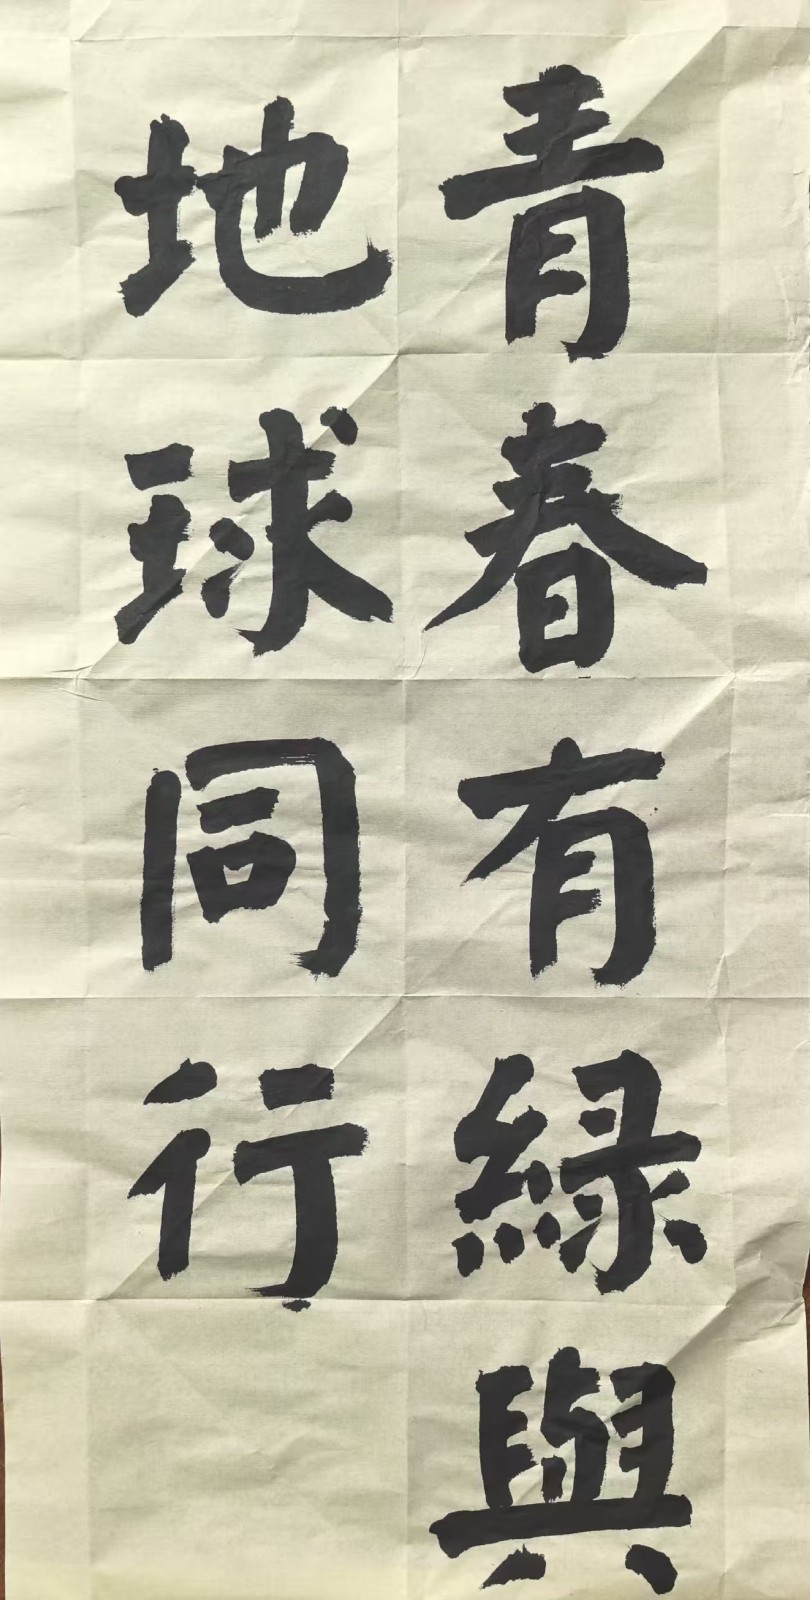 青春有綠與
地球同行